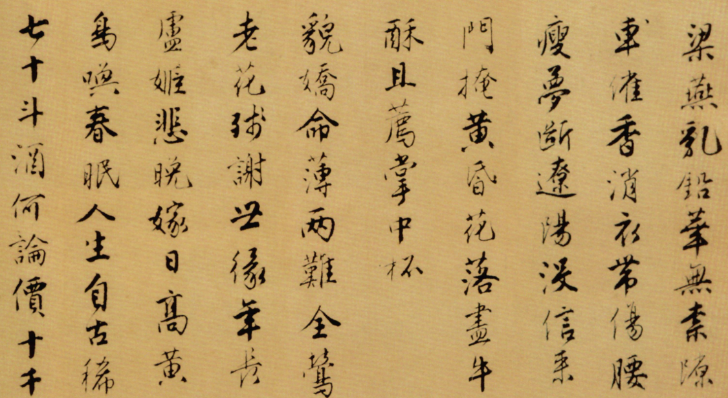 梁燕乳鉛華無柰隙
車催香消衣帶傷腰
瘦夢斷遼陽没信来
門掩黃昏花落盡牛
酥且薦掌中杯
貌嬌命薄两難全鶯
老花殘謝世緣年長
盧姬悲晚嫁日高黃
鳥喚春眠人生自古稀
七十斗酒何論價十千